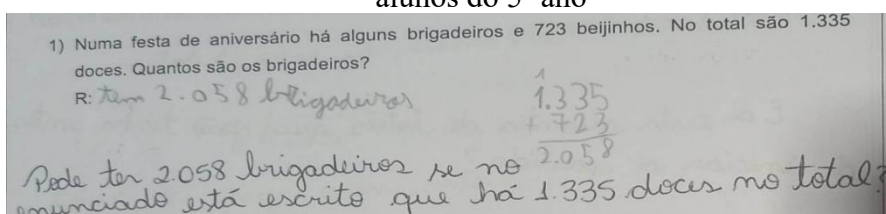 alunos do 5º ano
1) Numa festa de aniversário há alguns brigadeiros e 723 beijinhos. No total são 1.335
doces. Quantos são os brigadeiros?
R: tem 2.058 brigadeiros
1
1.335
+ 723
2.058
Pode ter 2.058 brigadeiros se no
enunciado está escrito que há 1.335 doces no total?